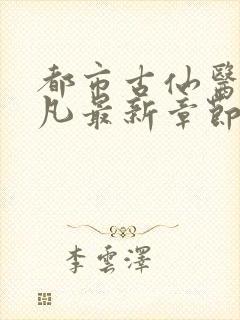 都市古仙醫
凡最新章節
李雲澤